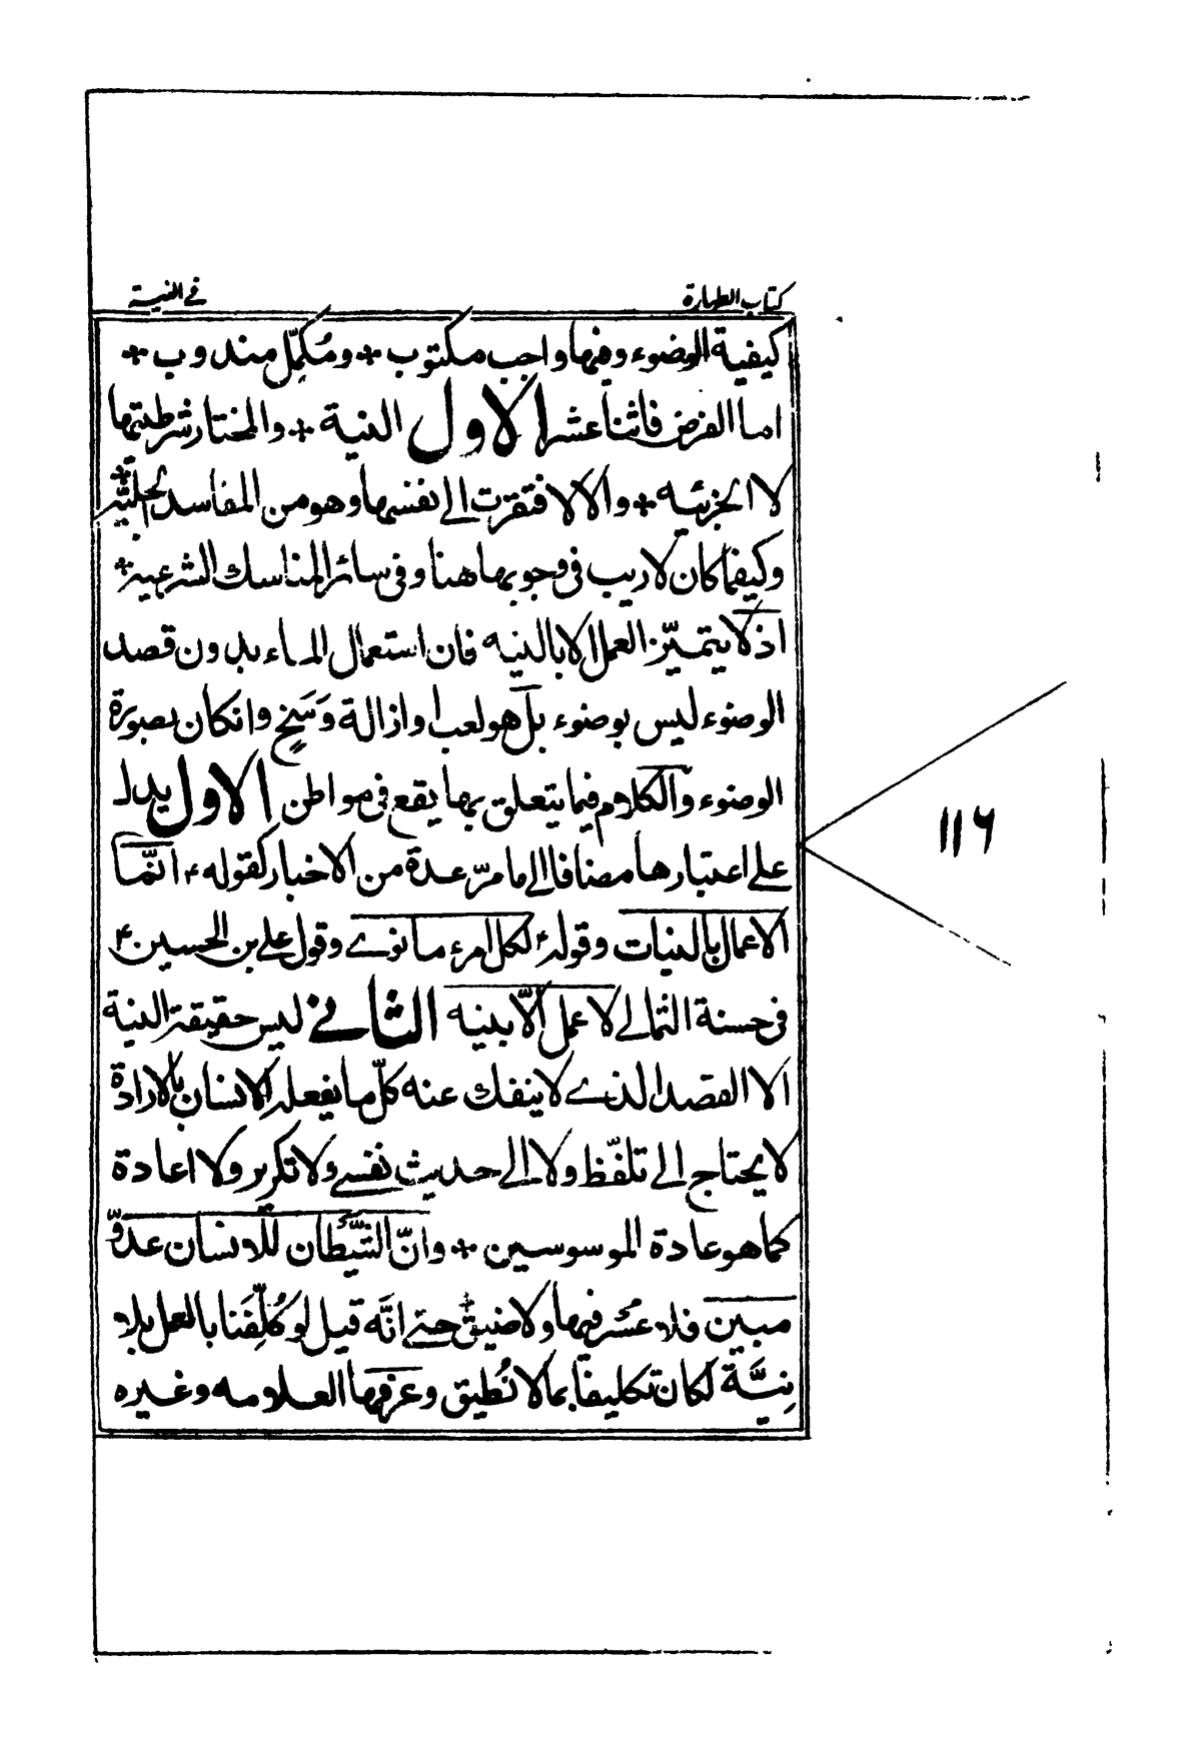 كتاب الطهارة
في النية
كيفية الوضوء وفيها واجب مكتوب * ومُكمِّل مندوب *
اما الفرض فاثنا عشر الاول النية * والمختار شرطيتها
لا الجزئيه * والا لافتقرت الى نفسها وهو من المفاسد الجليَّة *
وكيفما كان لا ريب في وجوبها هنا وفي سائر المناسك الشرعية *
اذ لا يتميّز العمل الا بالنيه فان استعمال الماء بدون قصد
الوضوء ليس بوضوء بل هو لعب او ازالة وَسَخٍ وانكان بصورة
الوضوء والكلام فيما يتعلق بها يقع في مواطن الاول يدل
على اعتبارها مضافا الى ما مرّ عدة من الاخبار كقوله ع انّما
الاعمال بالنيات وقوله ع لكل امرء ما نوى وقول علي بن الحسين ع
في حسنة الثمالي لا عمل الّا بنيه الثاني ليس حقيقة النية
الا القصد الذي لا ينفك عنه كلّ ما يفعله الانسان بالارادة
لا يحتاج الى تلفّظ ولا الى حديث نفسي ولا تكرير ولا اعادة
كما هو عادة الموسوسين * وانّ الشَّيْطان للانسان عدوّ
مبين فلا عُسر فيها ولا ضيق حتى انَّه قيل لو كُلِّفَنا بالعمل بلا
نِيَّة لكان تكليفاً بما لا نُطيق وعرفها العلامه وغيره
١١٦